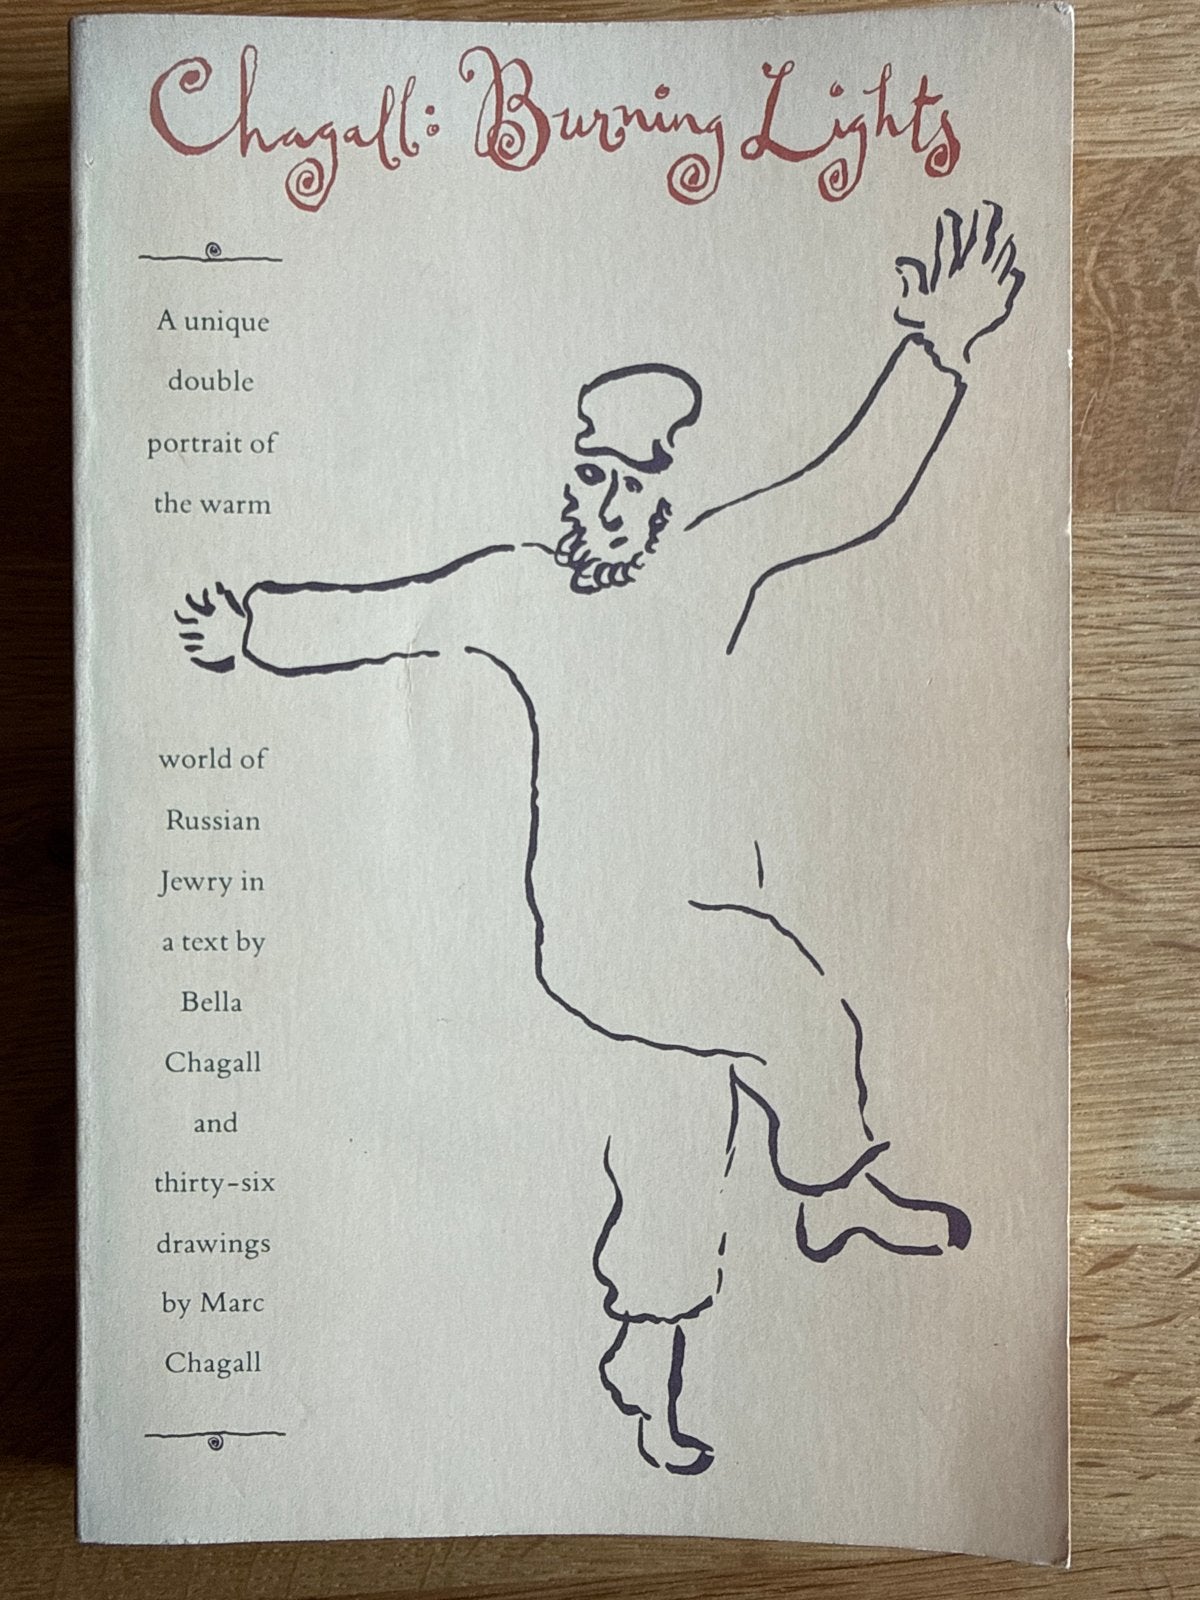 Chagall: Burning Lights
A unique
double
portrait of
the warm
world of
Russian
Jewry in
a text by
Bella
Chagall
and
thirty-six
drawings
by Marc
Chagall